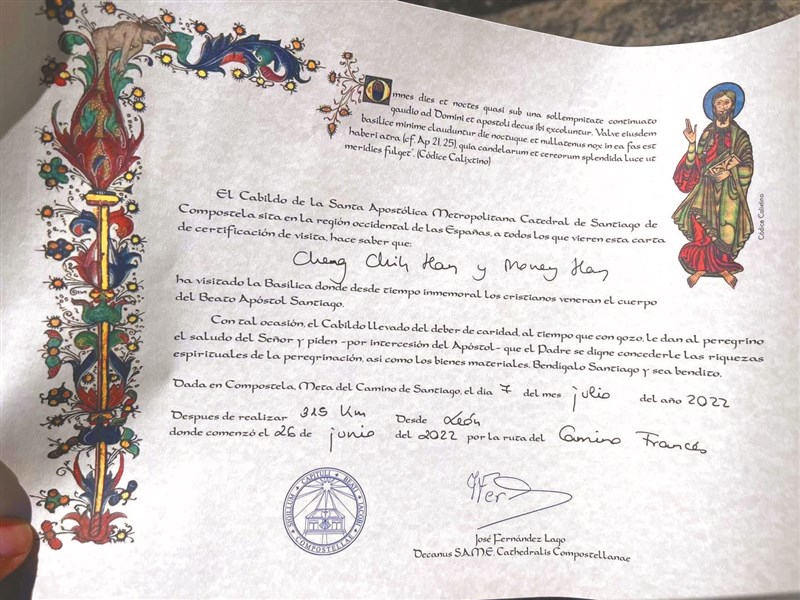 Omnes dies et noctes quasi sub una sollempnitate continuato
gaudio ad Domini et apostoli decus ibi excoluntur. Valve eiusdem
basilice minime clauduntur die noctuque, et nullatenus nox in ea fas est
haberi atra (cf. Ap 21, 25), quia candelarum et cereorum splendida luce ut
meridies fulget". (Códice Calixtino)
Códice Calixtino
El Cabildo de la Santa Apostólica Metropolitana Catedral de Santiago de
Compostela sita en la región occidental de las Españas, a todos los que vieren esta carta
de certificación de visita, hace saber que:
Cheng Chih Han y Money Han
ha visitado la Basílica donde desde tiempo inmemorial los cristianos veneran el cuerpo
del Beato Apóstol Santiago.
Con tal ocasión, el Cabildo llevado del deber de caridad, al tiempo que con gozo, le dan al peregrino
el saludo del Señor y piden -por intercesión del Apóstol- que el Padre se digne concederle las riquezas
espirituales de la peregrinación, así como los bienes materiales. Bendígalo Santiago y sea bendito.
Dada en Compostela, Meta del Camino de Santiago, el día 7 del mes julio del año 2022
Despues de realizar 325 Km Desde León
donde comenzó el 26 de junio del 2022 por la ruta del Camino Francés
SIGILLUM CAPITULI BEATI JACOBI
COMPOSTELLAE
José Fernández Lago
Decanus S.A.M.E. Cathedralis Compostellanae